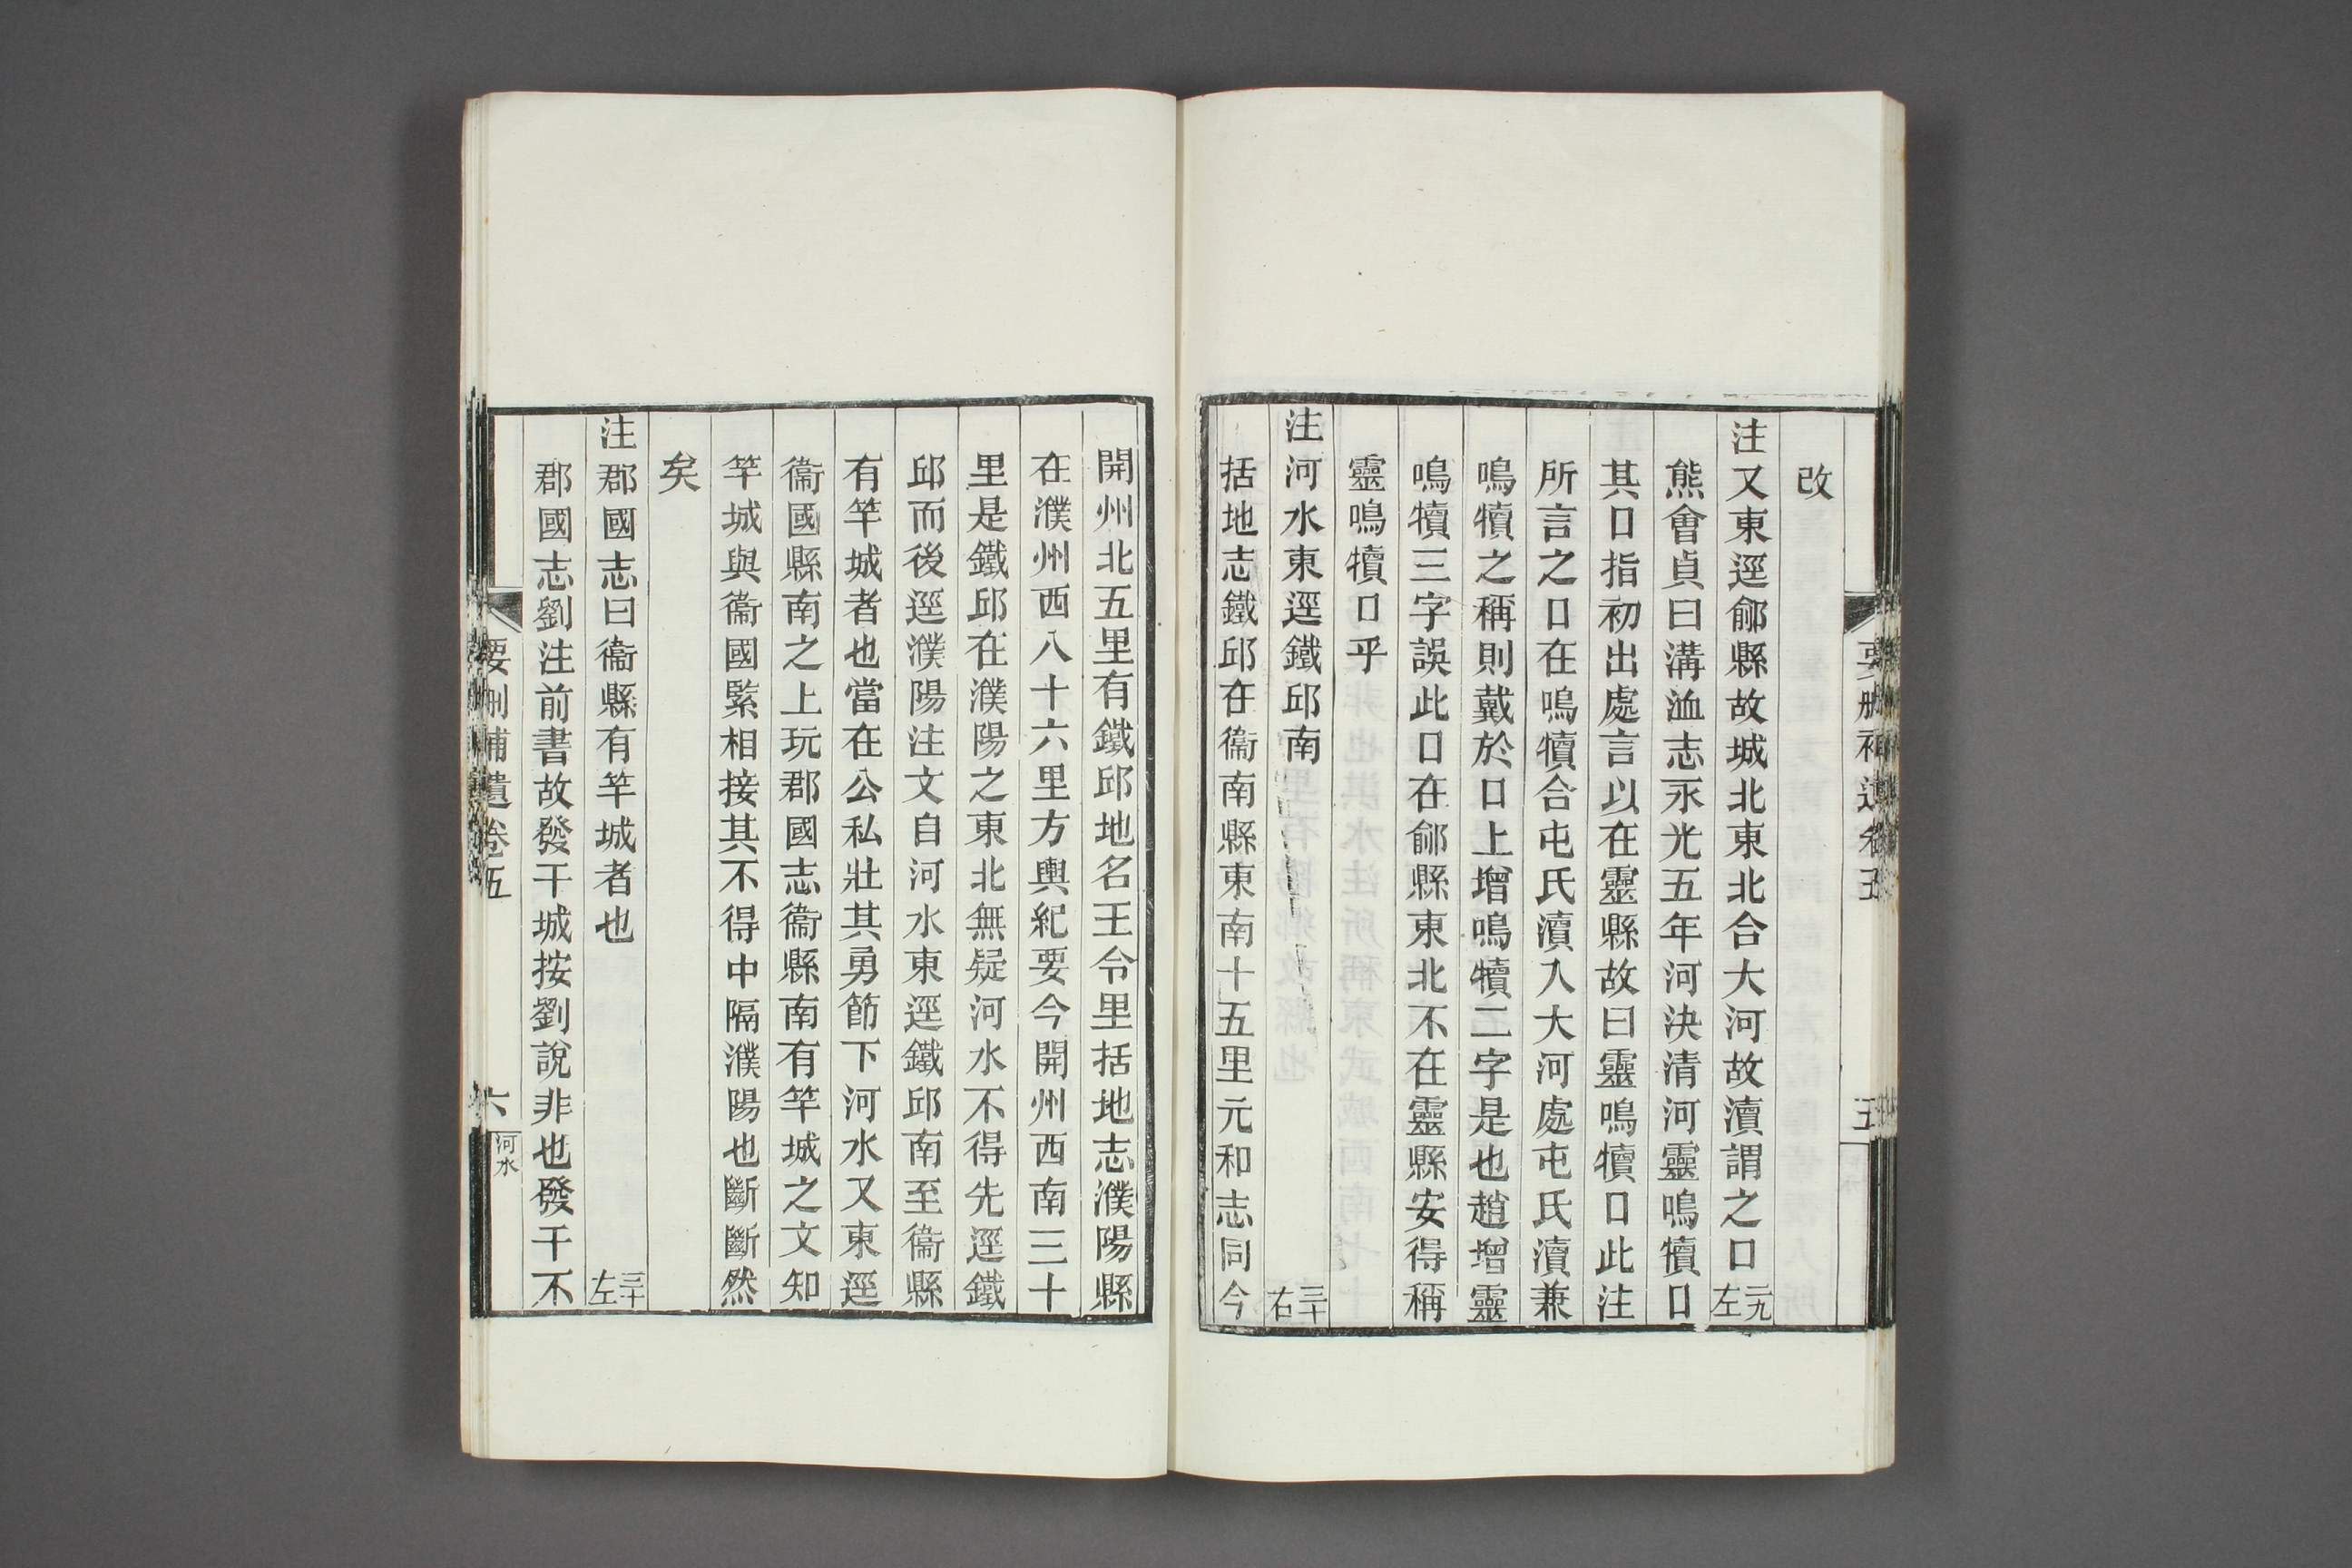 改
注又東逕鄃縣故城北東北合大河故瀆謂之口二九左
熊會貞曰溝洫志永光五年河決清河靈鳴犢口
其口指初出處言以在靈縣故曰靈鳴犢口此注
所言之口在鳴犢合屯氏瀆入大河處屯氏瀆兼
鳴犢之稱則戴於口上增鳴犢二字是也趙增靈
鳴犢三字誤此口在鄃縣東北不在靈縣安得稱
靈鳴犢口乎
注河水東逕鐵邱南三十右
括地志鐵邱在衞南縣東南十五里元和志同今
開州北五里有鐵邱地名王令里括地志濮陽縣
在濮州西八十六里方輿紀要今開州西南三十
里是鐵邱在濮陽之東北無疑河水不得先逕鐵
邱而後逕濮陽注文自河水東逕鐵邱南至衞縣
有竿城者也當在公私壯其勇節下河水又東逕
衞國縣南之上玩郡國志衞縣南有竿城之文知
竿城與衞國緊相接其不得中隔濮陽也斷斷然
矣
注郡國志曰衞縣有竿城者也三十左
郡國志劉注前書故發干城按劉說非也發干不
要刪補遺卷五 六 河水